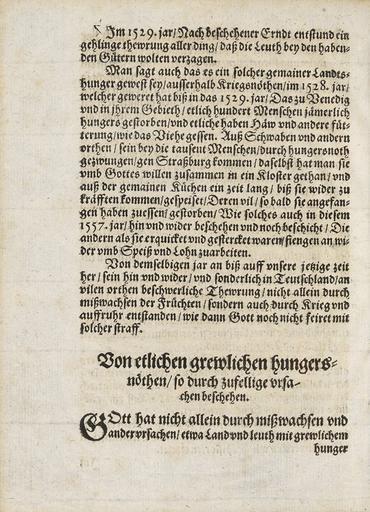 Im 1529. jar/ Nach beschehener Erndt entstund ein
gehlinge thewrung aller ding/ daß die Leuth bey den haben-
den Gütern wolten verzagen.
Man sagt auch das es ein solcher gemainer Landts-
hunger gewest sey/ ausserhalb Kriegsnöthen/ im 1528. jar/
welcher geweret hat biß in das 1529. jar/ Das zu Venedig
vnd in jhrem Gebieth/ etlich hundert Menschen jämerlich
hungers gestorben/ vnd etliche haben Häw vnd andere füt-
terung/ wie das Viehe gessen. Auß Schwaben vnd andern
orthen/ sein bey die tausent Menschen/ durch hungersnoth
gezwungen/ gen Straßburg kommen/ daselbst hat man sie
vmb Gottes willen zusammen in ein Kloster gethan/ vnd
auß der gemainen Küchen ein zeit lang/ biß sie wider zu
kräfften kommen/ gespeiset/ Deren vil/ so bald sie angefan-
gen haben zuessen/ gestorben/ Wie solches auch in diesem
1557. jar/ hin vnd wider beschehen vnd noch beschicht/ Die
andern als sie erquicket vnd gestercket waren/ fiengen an wi-
der vmb Speiß vnd Lohn zuarbeiten.
Von demselbigen jar an biß auff vnsere jetzige zeit
her/ sein hin vnd wider/ vnd sonderlich in Teutschland/ an
vilen orthen beschwerliche Thewrung/ nicht allein durch
mißwachsen der Früchten/ sondern auch durch Krieg vnd
auffruhr entstanden/ wie dann Gott noch nicht feiret mit
solcher straff.
Von etlichen grewlichen hungers-
nöthen/ so durch zufellige vrsa-
chen beschehen.
GOtt hat nicht allein durch mißwachsen vnd
ander vrsachen/ etwa Land vnd leuth mit grewlichem
hunger